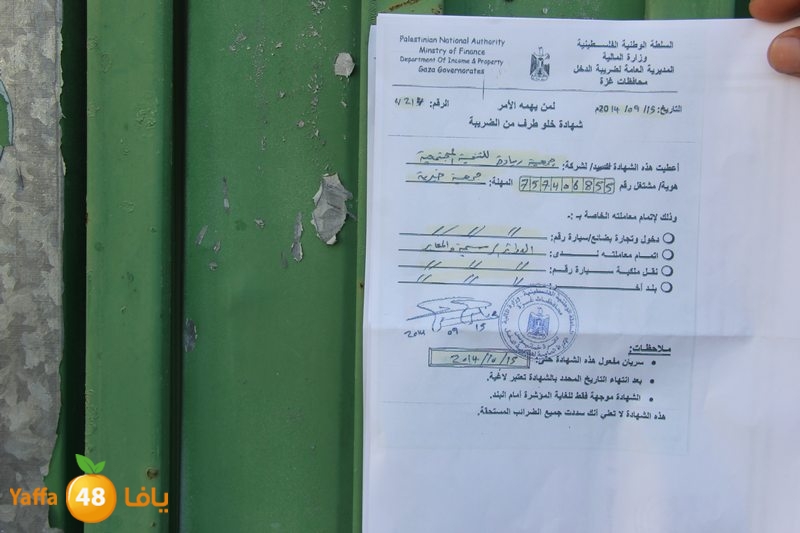 Palestinian National Authority
Ministry of Finance
Department Of Income & Property
Gaza Governorates
السلطة الوطنية الفلسطينية
وزارة المالية
المديرية العامة لضريبة الدخل
محافظات غزة
التاريخ: 15/ 09/ 2014م
لمن يهمه الأمر
الرقم:
شهادة خلو طرف من الضريبة
أعطيت هذه الشهادة للسيد/ لشركة: جمعية ريادة للتنمية المجتمعية
هوية/ مشتغل رقم 757406855 المهنة: جمعية خيرية
وذلك لإتمام معاملته الخاصة بـ :-
دخول وتجارة بضائع/سيارة رقم: // // //
اتمام معاملته لدى:
نقل ملكية سيارة رقم: // // //
بند آخر: // // //
15 09 2014
ملاحظات:
• سريان مفعول هذه الشهادة حتى: 15/ 10/ 2014
• بعد انتهاء التاريخ المحدد بالشهادة تعتبر لاغية.
• الشهادة موجهة فقط للغاية المؤشرة أمام البند.
هذه الشهادة لا تعني أنك سددت جميع الضرائب المستحقة.
Yaffa 48 يافا